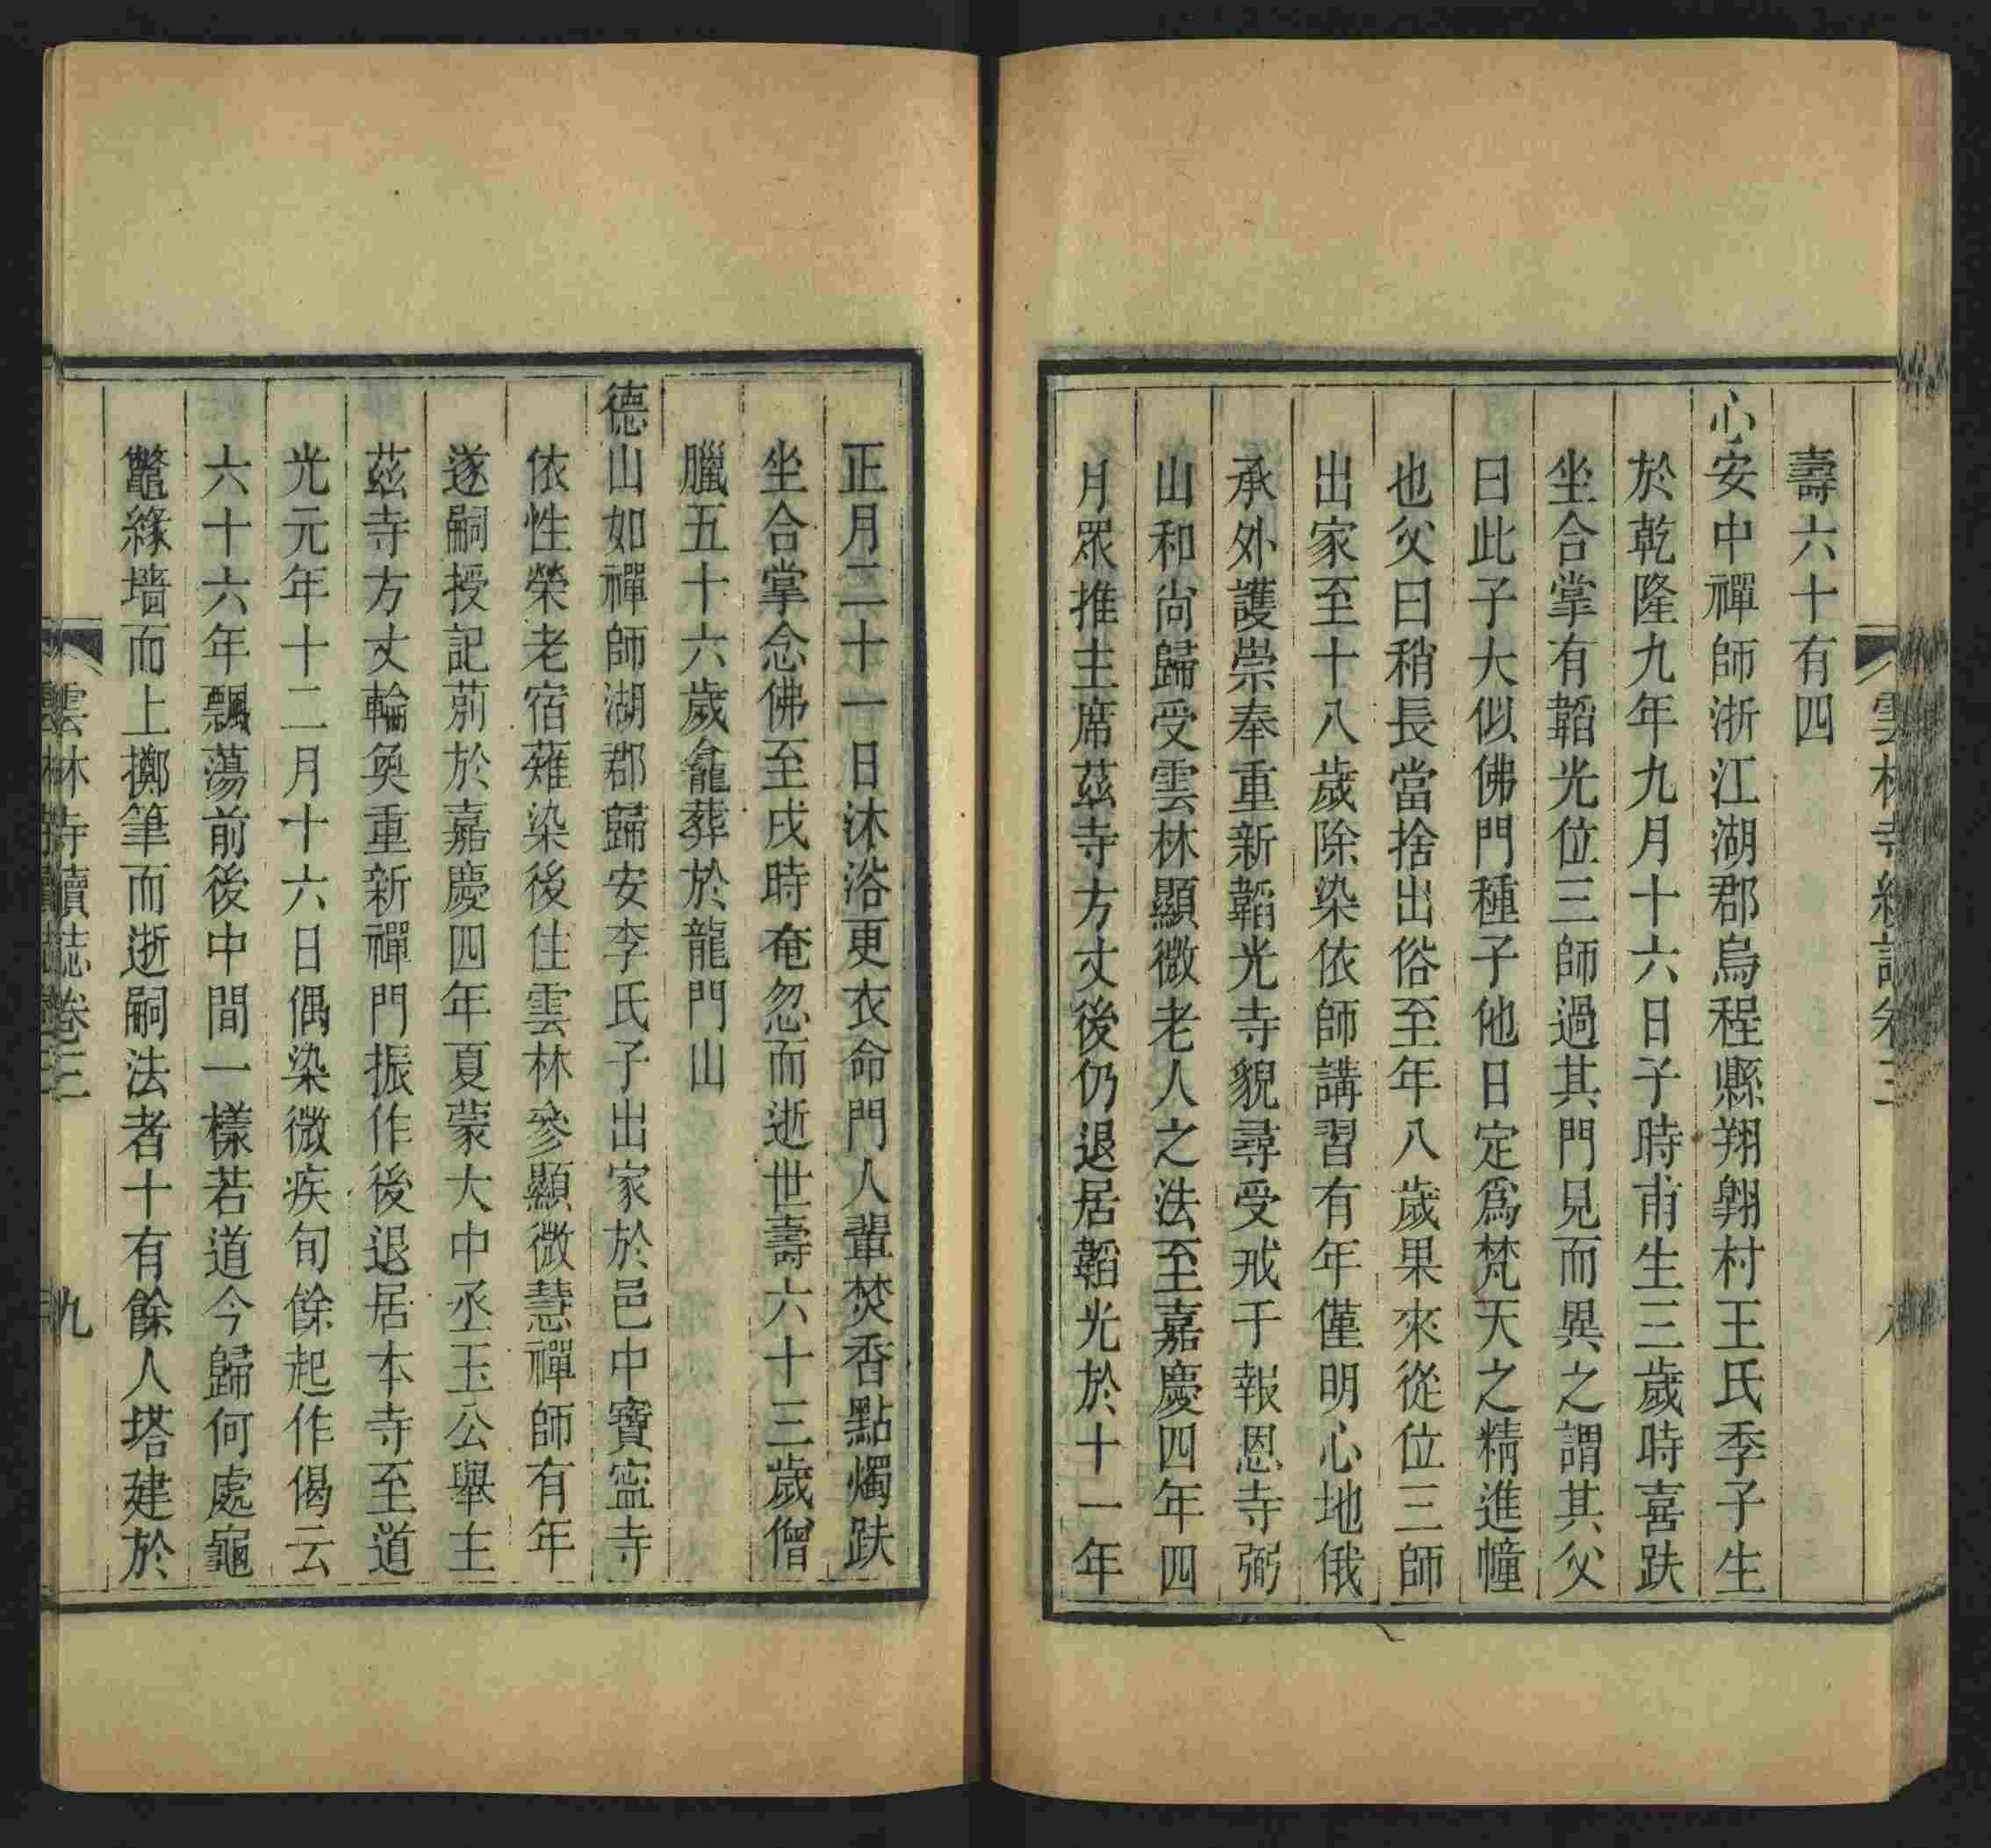 壽六十有四
心安中禪師浙江湖郡烏程縣翔翺村王氏季子生
於乾隆九年九月十六日子時甫生三歲時喜趺
坐合掌有韜光位三師過其門見而異之謂其父
曰此子大似佛門種子他日定爲梵天之精進幢
也父曰稍長當捨出俗至年八歲果來從位三師
出家至十八歲除染依師講習有年僅明心地俄
承外護崇奉重新韜光寺貌尋受戒于報恩寺弼
山和尙歸受雲林顯微老人之法至嘉慶四年四
月眾推主席茲寺方丈後仍退居韜光於十一年
正月二十一日沐浴更衣命門人輩焚香點燭趺
坐合掌念佛至戌時奄忽而逝世壽六十三歲僧
臘五十六歲龕葬於龍門山
德山如禪師湖郡歸安李氏子出家於邑中寶寍寺
依性榮老宿薙染後住雲林參顯微慧禪師有年
遂嗣授記莂於嘉慶四年夏蒙大中丞玉公舉主
茲寺方丈輪奐重新禪門振作後退居本寺至道
光元年十二月十六日偶染微疾旬餘起作偈云
六十六年飄蕩前後中間一樣若道今歸何處龜
鼈緣墻而上擲筆而逝嗣法者十有餘人塔建於
雲林寺續誌卷三
九